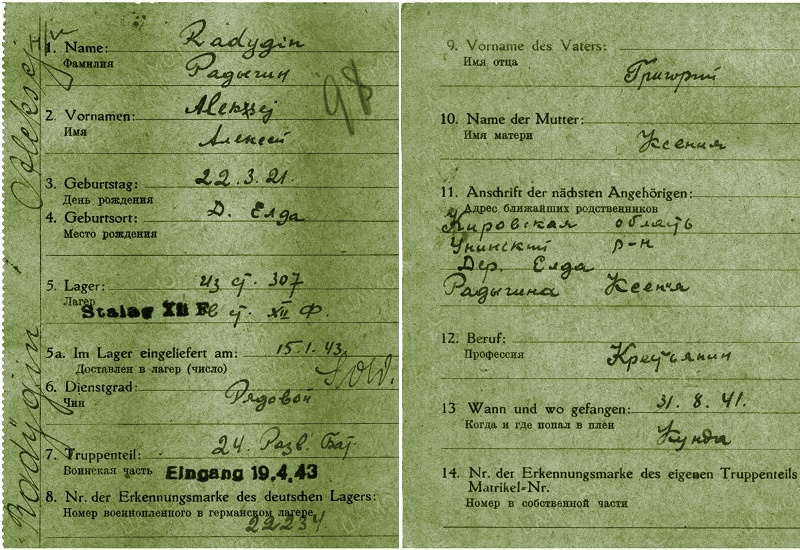 Radygin Aleksej
1. Name: Radygin
Фамилия Радыгин
2. Vornamen: Alekssej
Имя Алексей
98
3. Geburtstag: 22.3.21.
День рождения
4. Geburtsort: Д. Елда
Место рождения
5. Lager: из ст. 307
Лагерь
Stalag XII F в ст. XII Ф.
5a. Im Lager eingeliefert am: 15.1.43
Доставлен в лагерь (число)
Sold.
6. Dienstgrad: Рядовой
Чин
7. Truppenteil: 24. Разв. Бат
Воинская часть Eingang 19.4.43
8. Nr. der Erkennungsmarke des deutschen Lagers:
Номер военнопленного в германском лагере
22234
9. Vorname des Vaters:
Имя отца
Григорий
10. Name der Mutter:
Имя матери
Ксения
11. Anschrift der nächsten Angehörigen:
Адрес ближайших родственников
Кировская область
Унинский р-н
Дер. Елда
Радыгина Ксения
12. Beruf:
Профессия
Крестьянин
13 Wann und wo gefangen: 31. 8. 41.
Когда и где попал в плен
Кунда
14. Nr. der Erkennungsmarke des eigenen Truppenteils
Matrikel-Nr.
Номер в собственной части